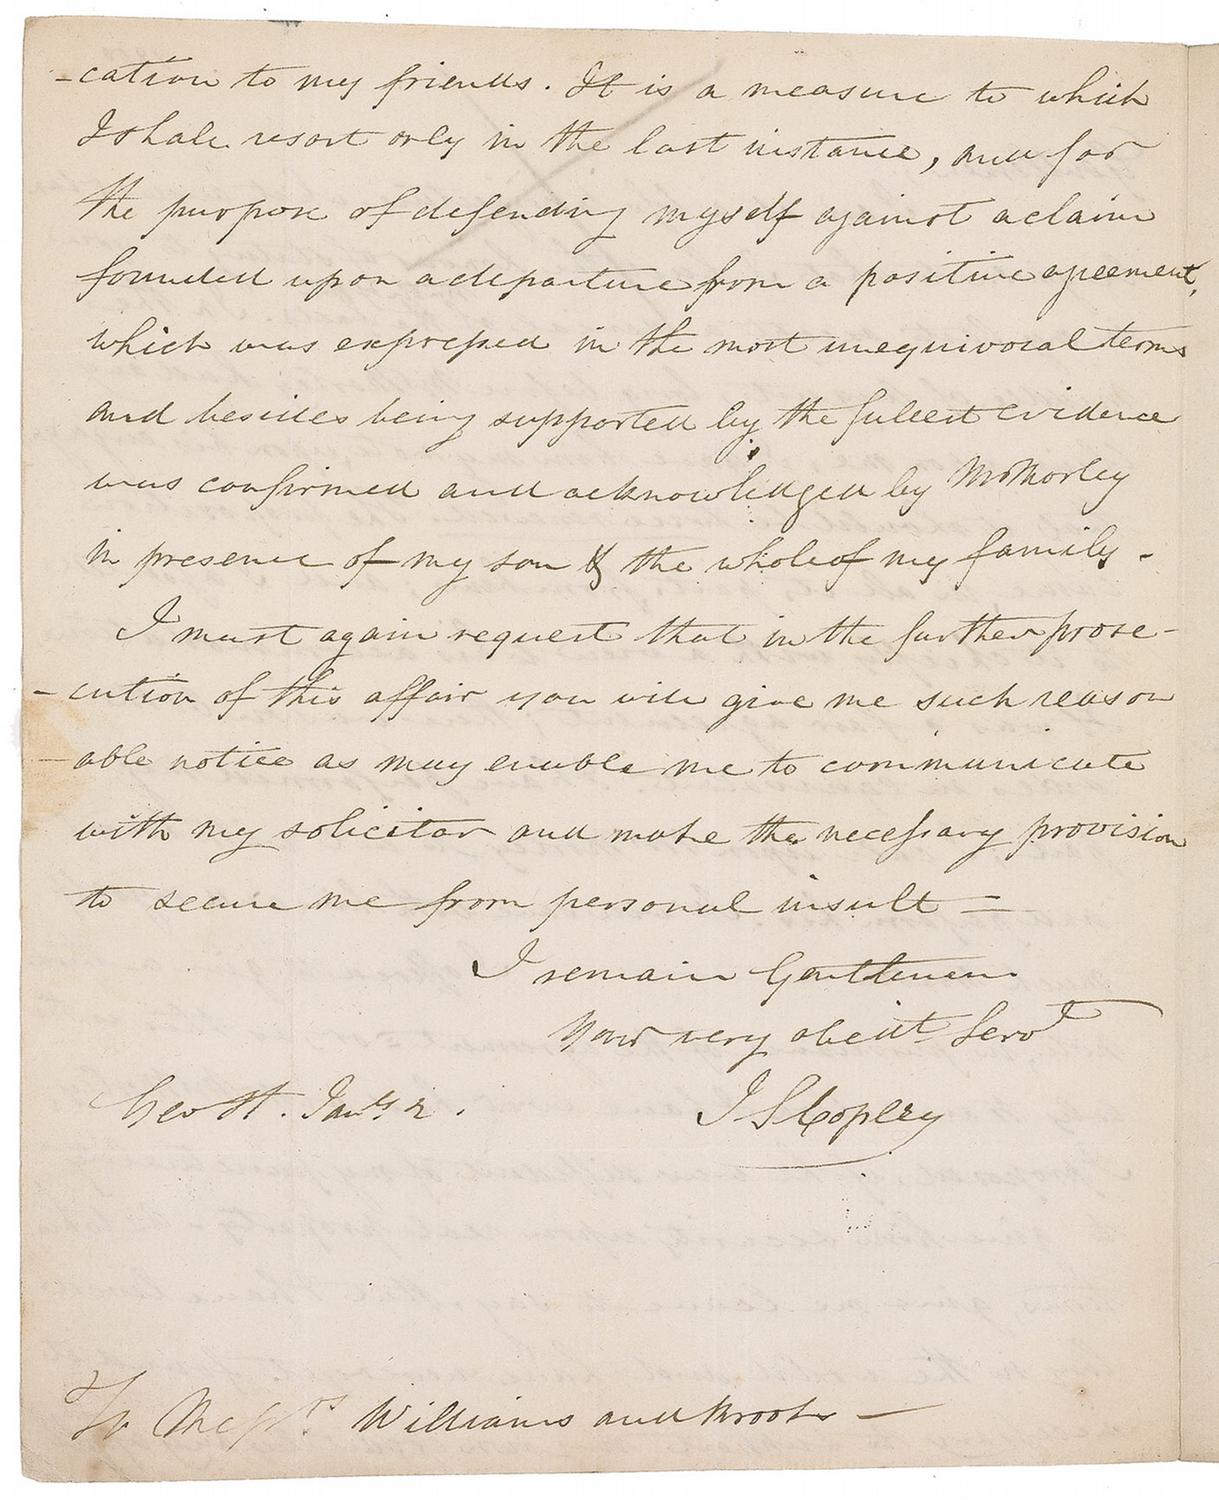 -cation to my friends. It is a measure to which
I shall resort only in the last instance, and for
the purpose of defending myself against a claim
founded upon a departure from a positive agreement,
which was expressed in the most unequivocal terms
and besides being supported by the fullest evidence
was confirmed and acknowledged by Mr Morley
in presence of my son & the whole of my family.
I must again request that in the further prose-
-cution of this affair you will give me such reason
-able notice as may enable me to communicate
with my solicitor and make the necessary provision
to secure me from personal insult =
I remain Gentlemen
Your very obedt Servt
Geo St. Jany 2. J S Copley
To Messrs Williams and Brooks —